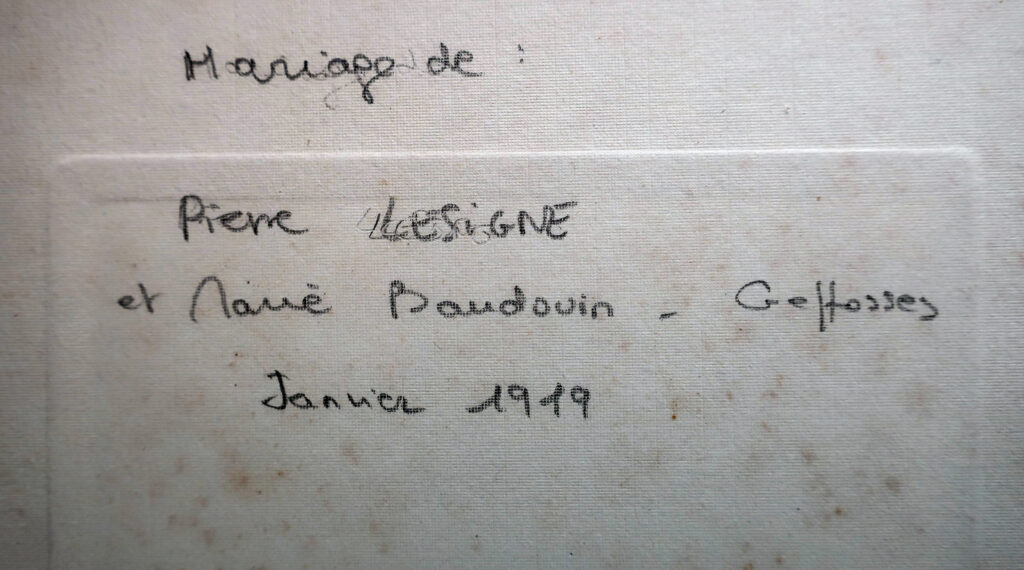 Mariage de :
Pierre LESiGNE
et Marie Baudouin - Geffosses
Janvier 1919